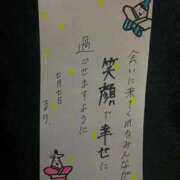 会いに来てくれるみんなが
笑顔で幸せに
過ごせますように
七月七日
るり